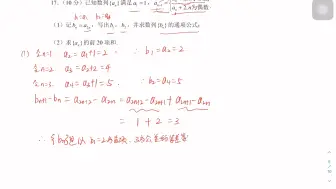 17. (10分) 已知数列{aₙ}满足a₁=1, aₙ₊₁={aₙ+1, n为奇数, aₙ+2, n为偶数.
b₁=a₂ b₂=a₄
(1) 记bₙ=a₂ₙ, 写出b₁, b₂, 并求数列{bₙ}的通项公式;
(2) 求{aₙ}的前20项和.
(1) 令n=1 a₂=a₁+1=2 ∴b₁=a₂=2
令n=2 a₃=a₂+2=4
令n=3 a₄=a₃+1=5 ∴b₂=a₄=5
bₙ₊₁-bₙ=a₂ₙ₊₂-a₂ₙ=a₂ₙ₊₂-a₂ₙ₊₁+a₂ₙ₊₁-a₂ₙ
=1+2=3
∴{bₙ}是以b₁=2为首项, 3为公差的等差数